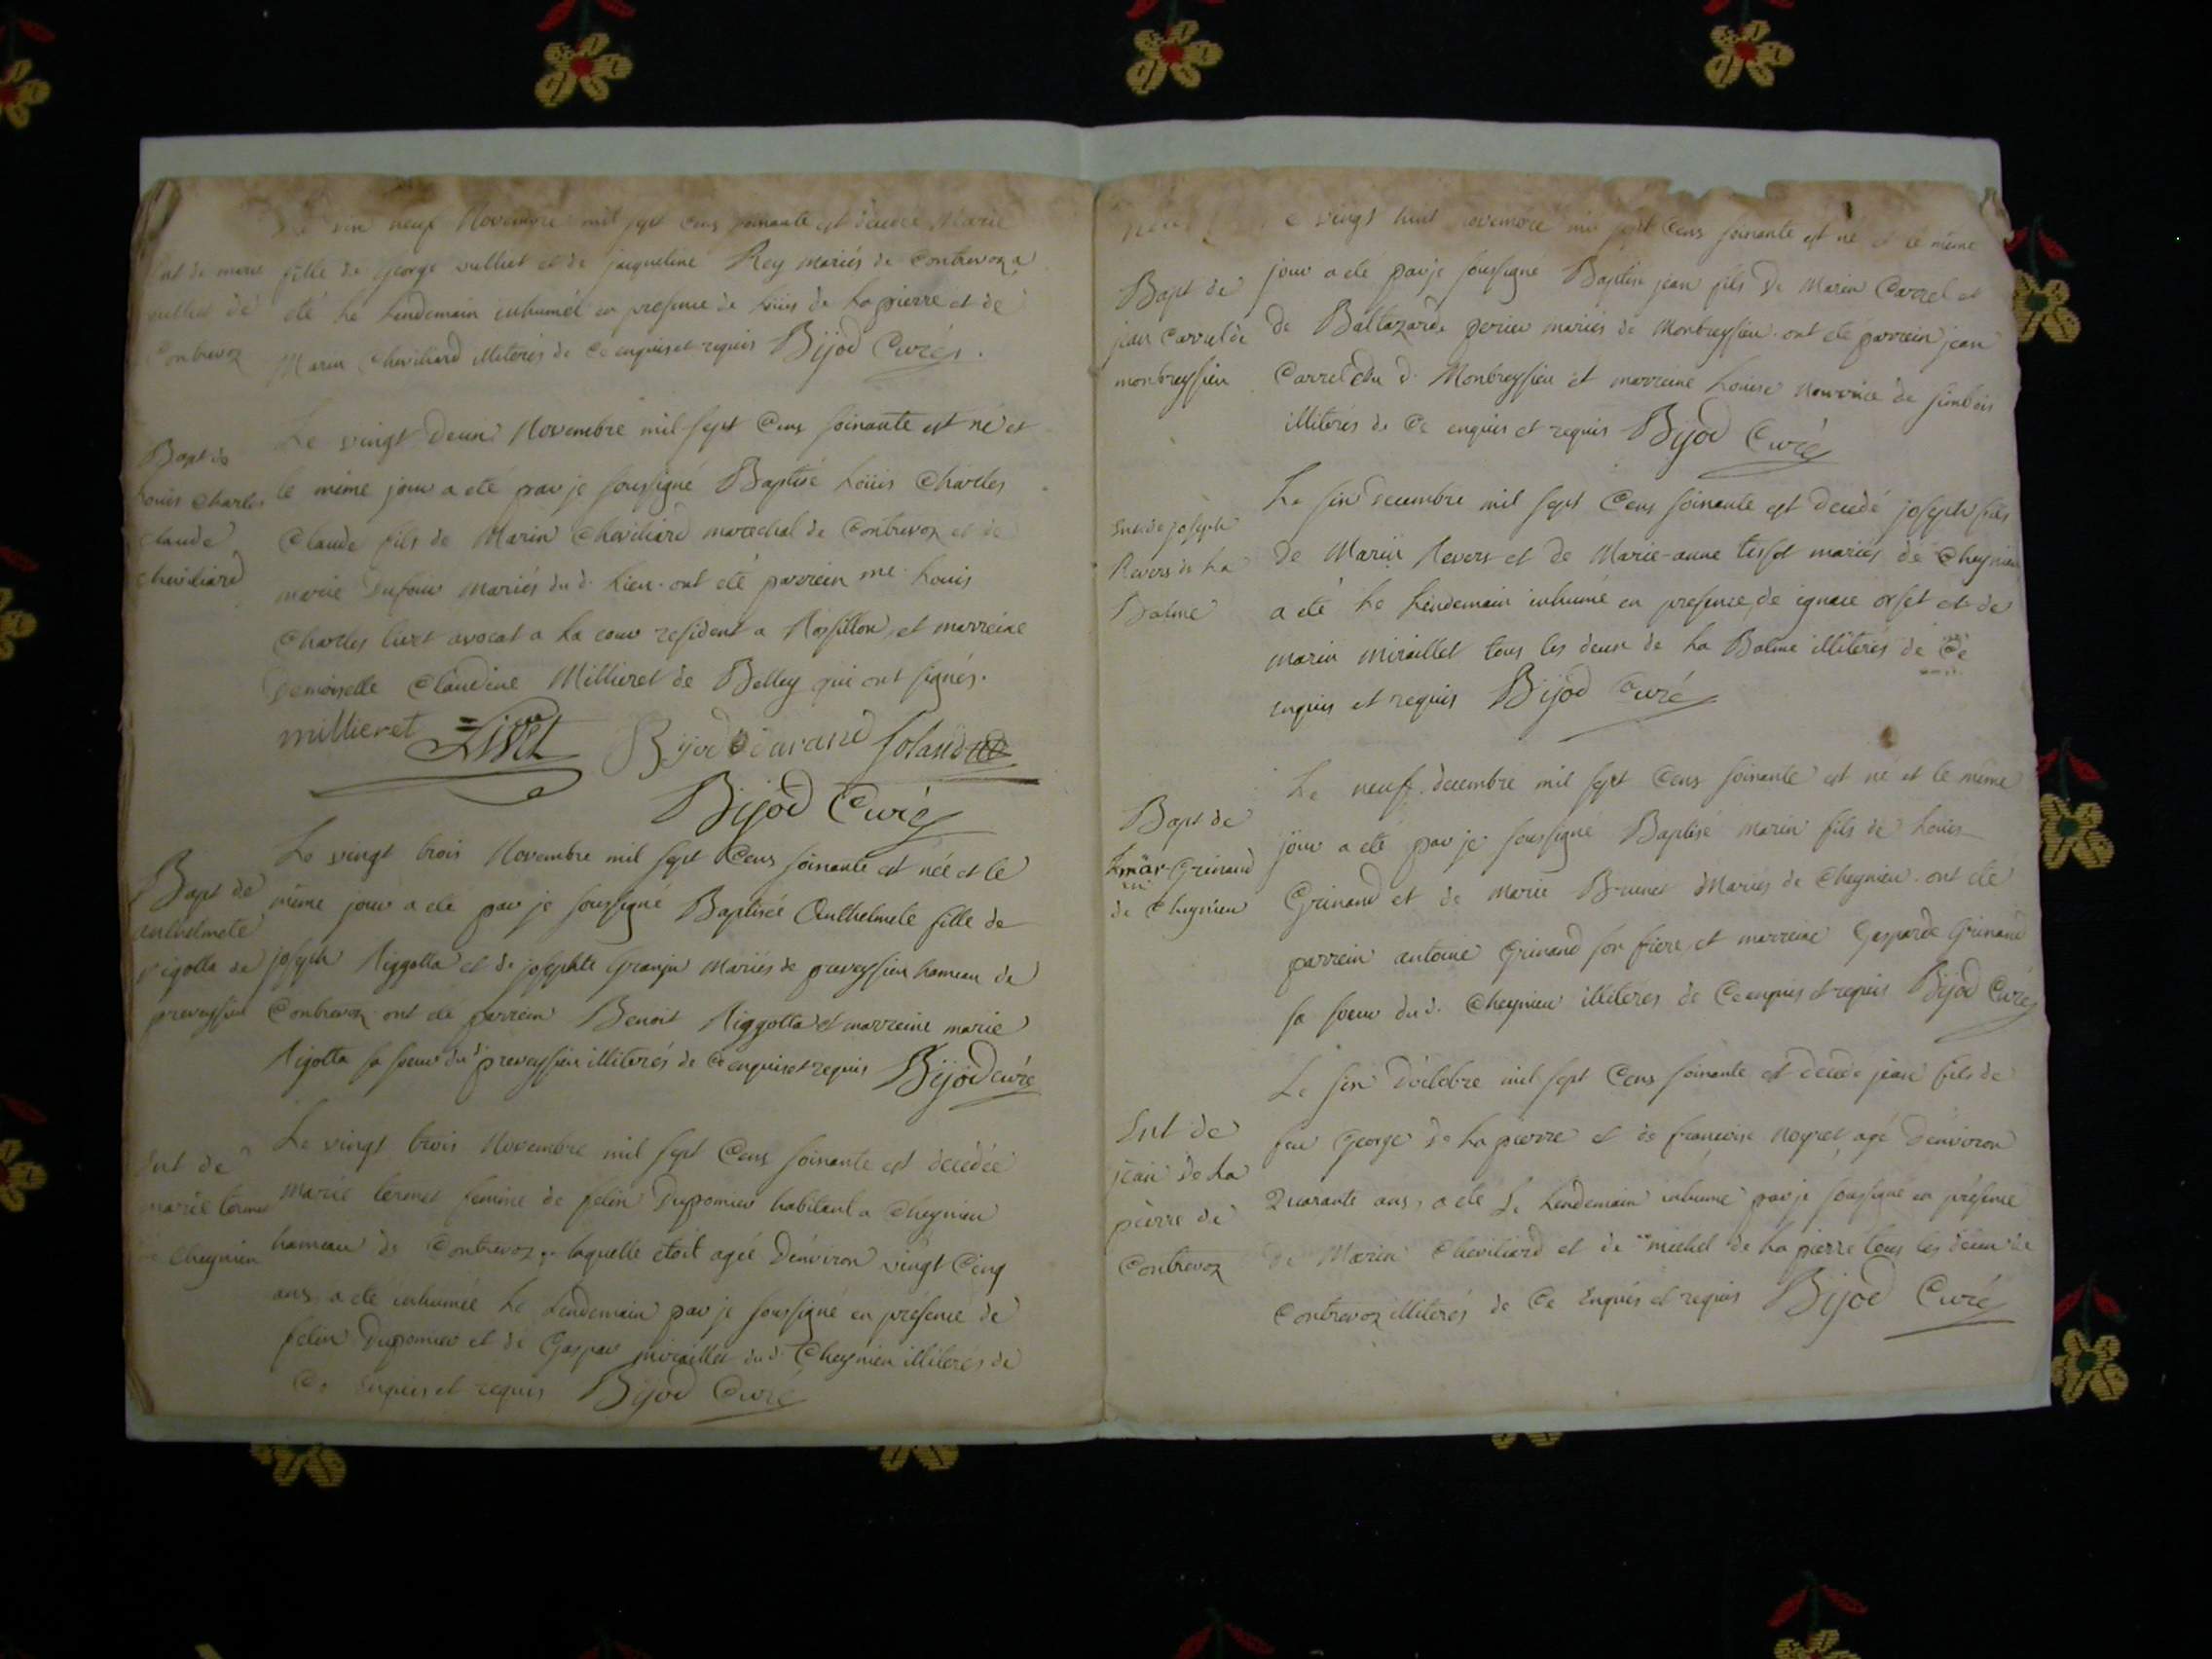 neuf Novembre mil sept Cens soixante est decede Marie
fille de George vulliet et de jacqueline Rey mariés de Contrevoz a
été Le Lendemain inhumée en presence de Loüis de La pierre et de
Marin Cheviliard illiterés de Ce enquis et requis Bijod Curé
Ent de marie
vulliet de
Contrevoz
Le vingt deux Novembre mil sept Cens soixante est né et
le même jour a eté par je soussigné Baptisé Loüis Charles
Claude fils de Marin Cheviliard marechal de Contrevoz et de
marie Dufour mariés du d. Lieu ont eté parrein me Louis
Charles livet avocat a La cour resident a Rossillon et marreine
Demoiselle Claudine Millieret de Belley qui ont signés.
Bapt de
Louis Charles
Claude
Cheviliard
millieret Livet Bijod
Bijod Curé
Le vingt trois Novembre mil sept Cens soixante est née et le
même jour a eté par je soussigné Baptisée Anthelmete fille de
joseph Riggotta et de josephte Granju Mariés de preveyssieu hameau de
Contrevoz ont eté parrein Benoit Riggotta et marreine marie
Rigotta sa soeur du d preveyssieu illiterés de Ce enquis et requis Bijod curé
Bapt de
anthelmete
rigotta de
preveyssieu
Le vingt trois Novembre mil sept Cens soixante est decedée
Marie termet femme de felix Dupomier habitant a Cheynieu
hameau de Contrevoz, laquelle etoit agée d'environ vingt Cinq
ans a eté inhumée Le Lendemain par je soussigné en présence de
felix Dupomier et de Gaspar miraillet du d. Cheynieu illiterés de
Ce Enquis et requis Bijod Curé
Ent de
marie termet
de Cheynieu
vingt huit novembre mil sept Cens soixante est né et le même
jour a eté par je soussigné Baptisé jean fils de Marin Carrel et
de Baltazarde perier mariés de Monbreyssieu ont eté parrein jean
Carrel du d. Monbreyssieu et marreine Louise
illiterés de Ce enquis et requis Bijod Curé
Bapt de
jean Carrel de
monbreyssieu
Le six decembre mil sept Cens soixante est decedé joseph fils
de Marin Revers et de Marie-anne tissot mariés de Cheynieu
a eté Le Lendemain inhumé en presence de ignace orset et de
marin miraillet tous les deux de La Balme illiterés de Ce
enquis et requis Bijod Curé
Ent de joseph
Revers de La
Balme
Le neuf decembre mil sept Cens soixante est né et le même
jour a eté par je soussigné Baptisé marin fils de Louis
Grinand et de marie Brunet Mariés de Cheynieu ont eté
parrein antoine Grinand son frere, et marreine Gasparde Grinand
sa soeur du d. Cheynieu illiterés de Ce enquis et requis Bijod Curé
Bapt de
mar Grinand
de Cheynieu
Le six d'octobre mil sept Cens soixante est decedé jean fils de
feu George de La pierre et de françoise Noyret agé d'environ
Quarante ans, a eté Le Lendemain inhumé par je soussigné en présence
de Marin Cheviliard et de michel de La pierre tous les deux de
Contrevoz illiterés de Ce Enquis et requis Bijod Curé
Ent de
jean de La
pierre de
Contrevoz